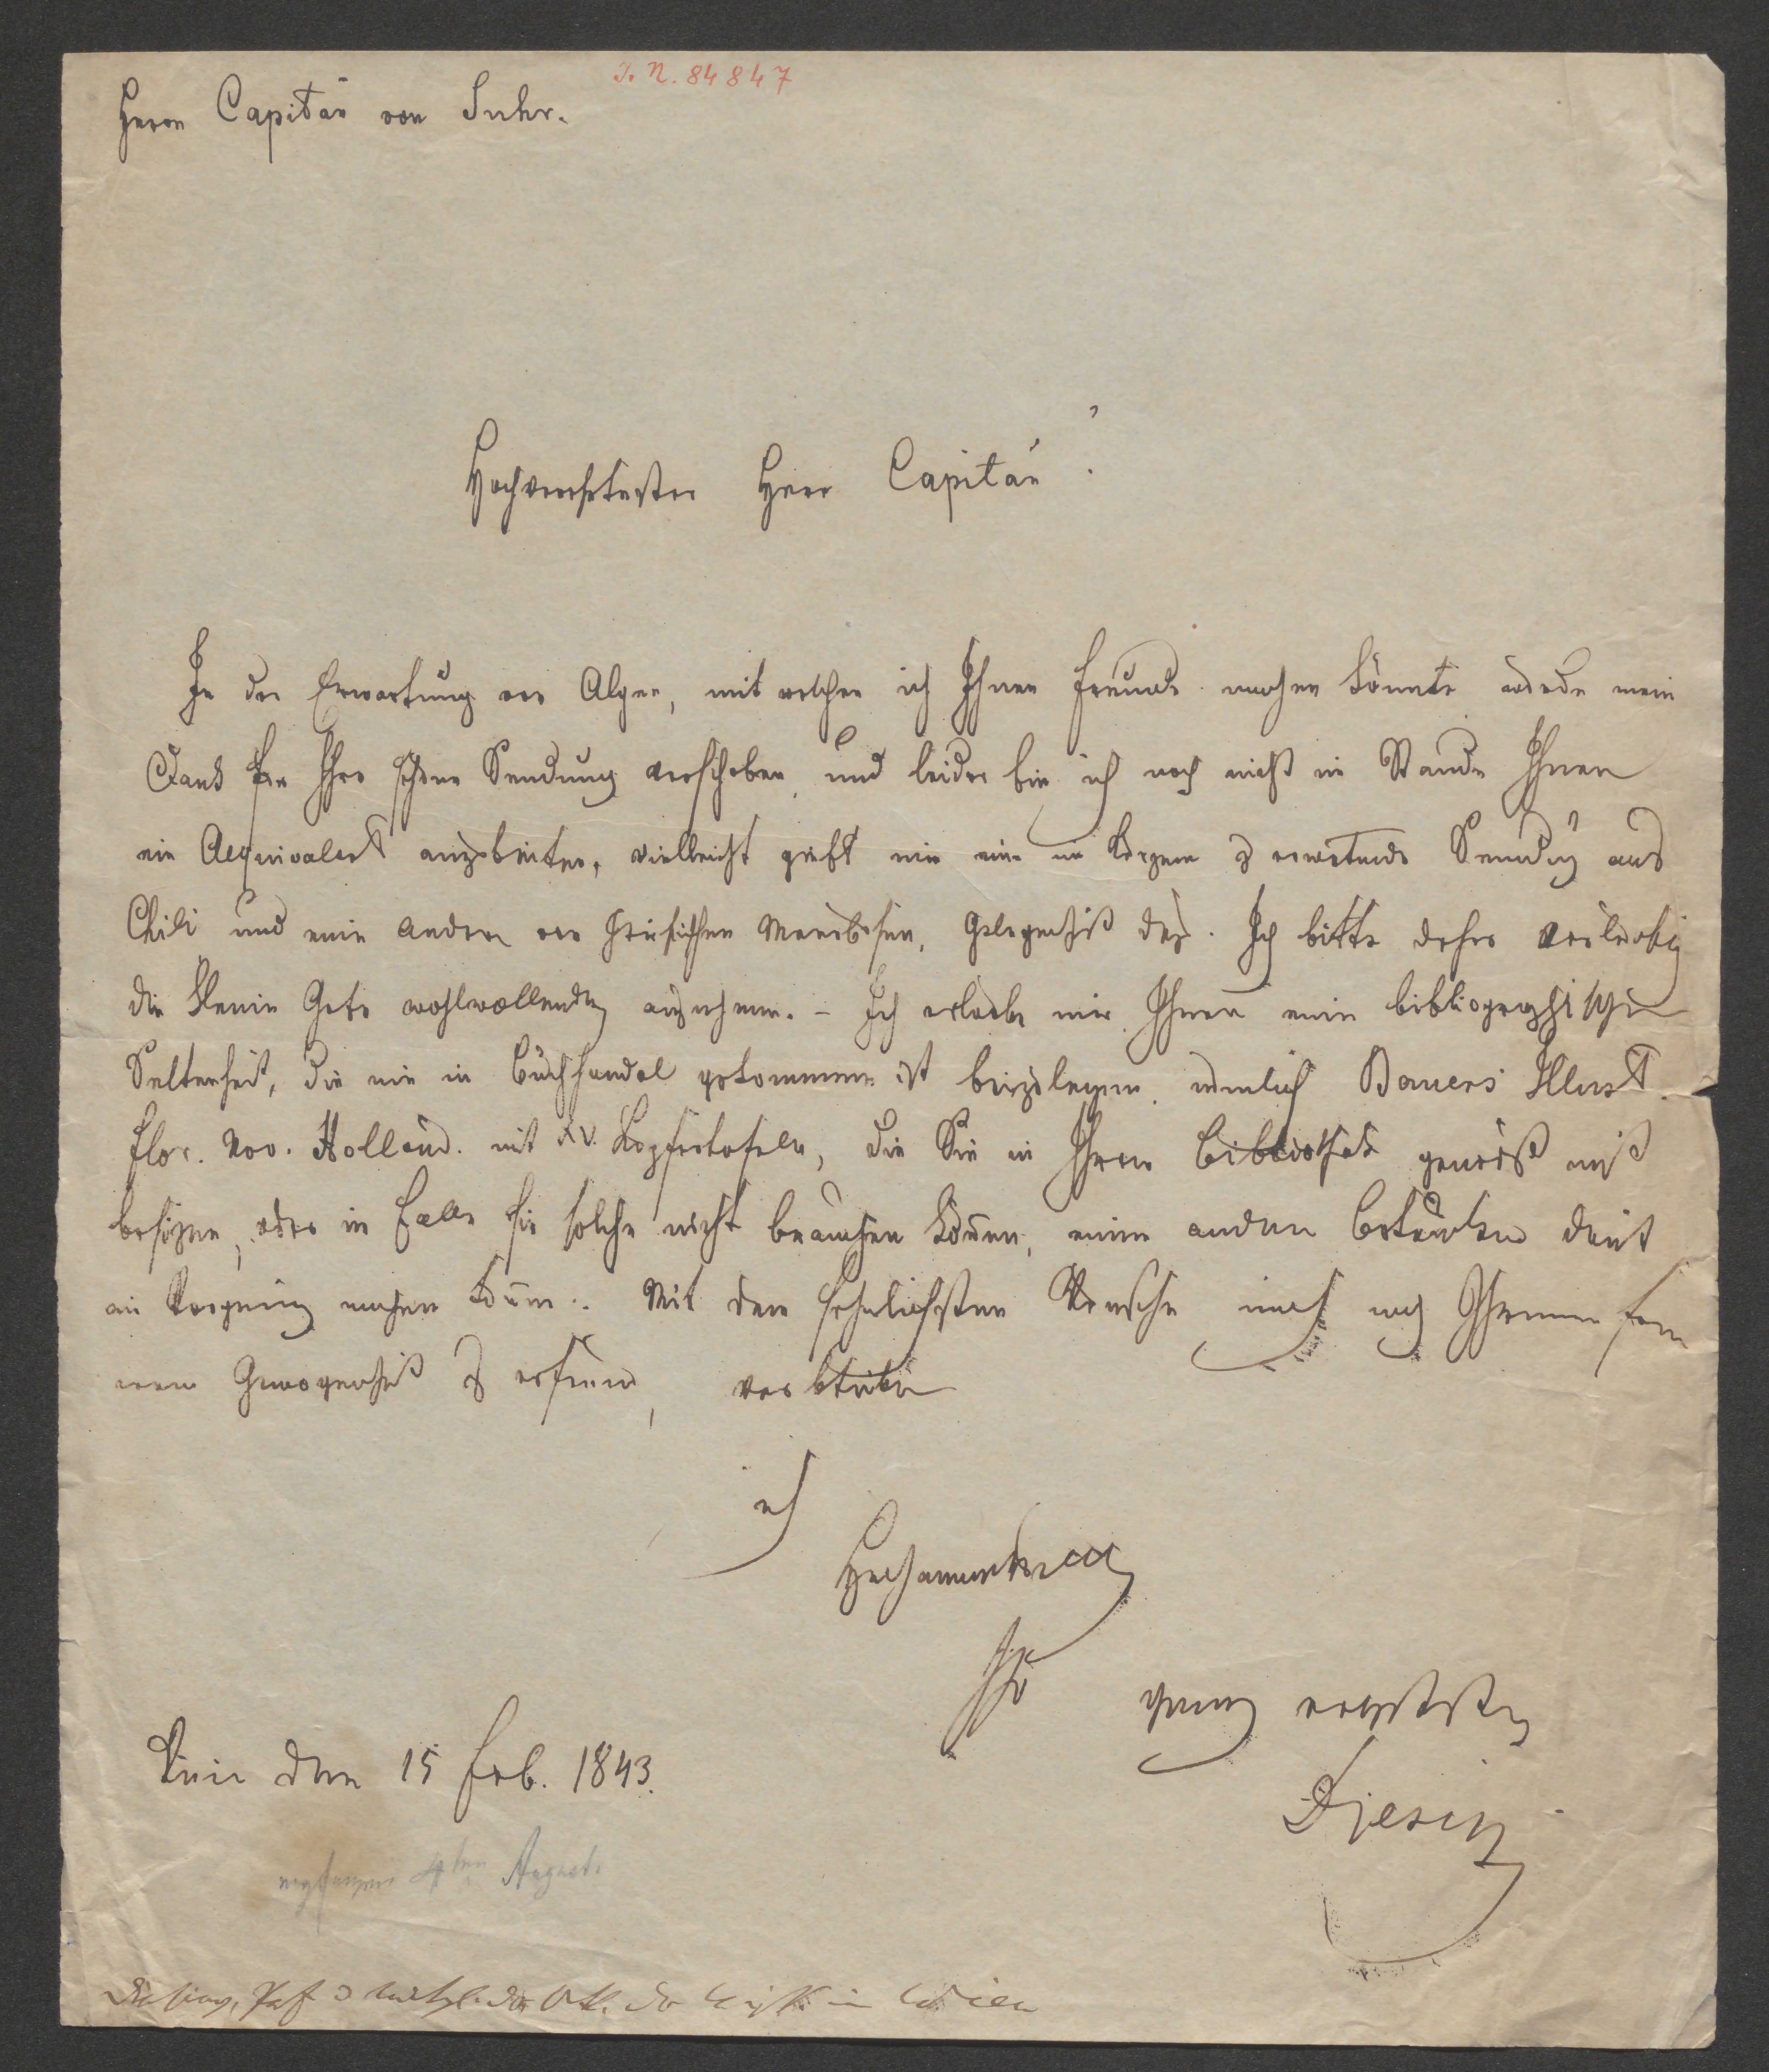 I. N. 84847
Herrn Capitän von Suhr.
Hochverehrtester Herr Capitän!
In der Erwartung von Algen, mit welchen ich Ihnen Freude machen könnte wurde mein
Dank für Ihre schöne Sendung verschoben, und leider bin ich noch nicht im Stande Ihnen
ein Aequivalent anzubieten, vielleicht giebt mir eine in Kürze zu erwartende Sendung aus
Chili und eine andere vom Meerbusen, Gelegenheit dazu. Ich bitte daher vorläufig
die kleine Gabe wohlwollend anzunehmen. – Ich erlaube mir Ihnen eine bibliographische
Seltenheit, die nie in Buchhandel gekommen ist beizulegen, nemlich Bauers Illust.
Flor. Nov. Holland. mit XV. Kupfertafeln, die Sie in Ihrer Bibliothek gewiß nicht
besitzen, oder im Falle sie solche nicht brauchen können, einem andern Botaniker damit
ein Vergnügen machen können. Mit dem sehnlichsten Wunsche mich noch Ihrer fer
neren Gewogenheit zu erfreuen, verbleibe
ich
Hochdenenselben
Ihr ganz ergebenster
Diesing
Wien den 15 Feb. 1843.
empfangen 4ten August.
Diesing, in Wien